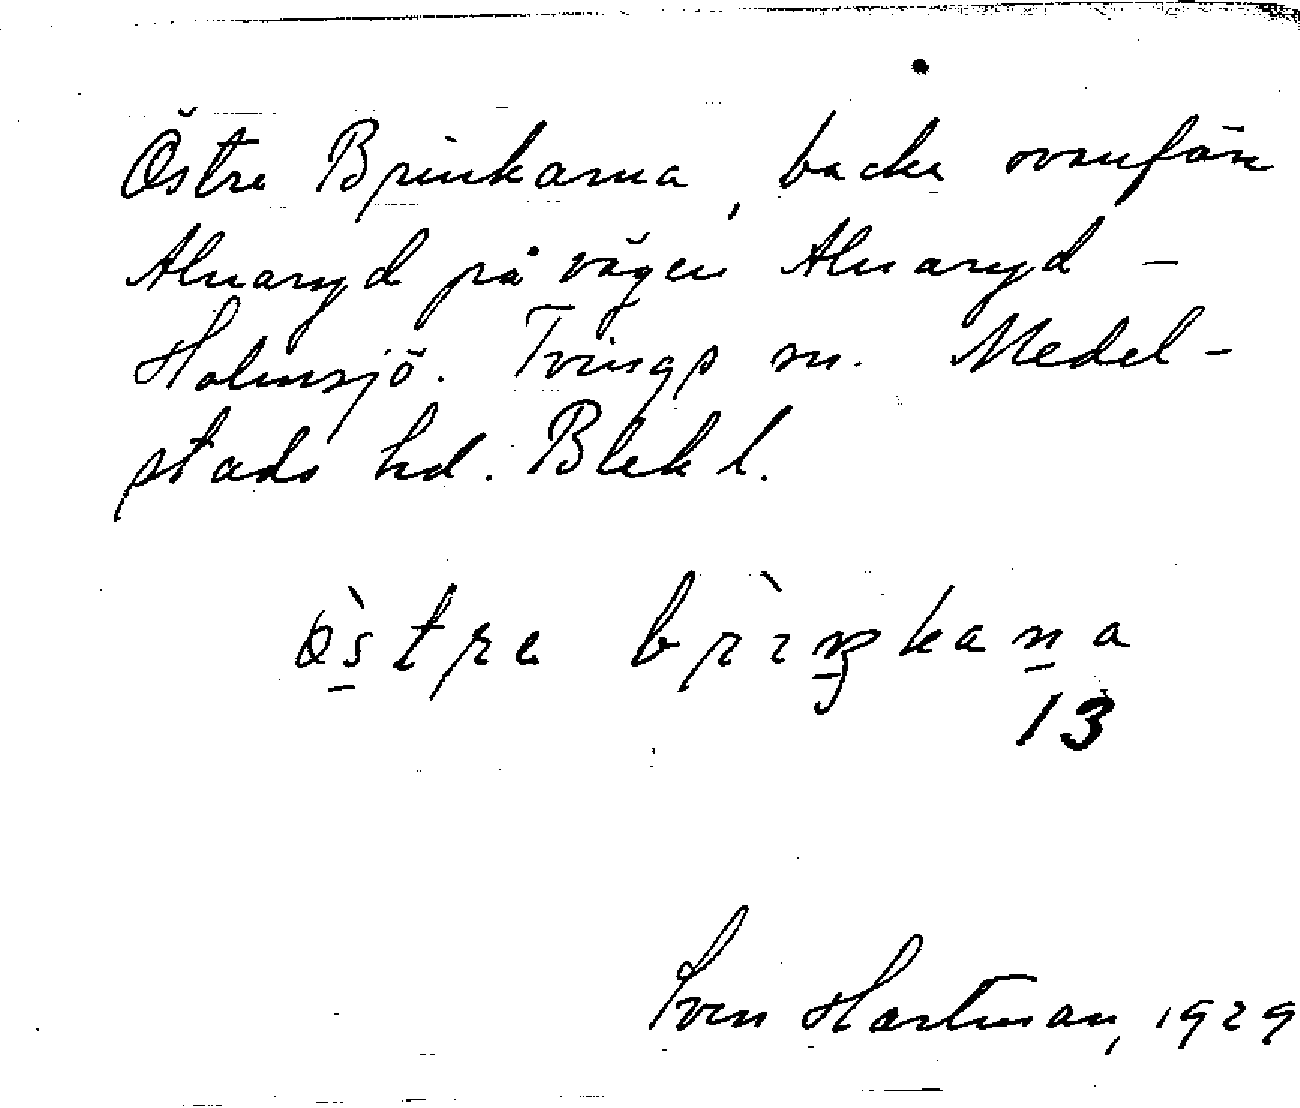 Östra Brinkarna, backe ovanför
Alnaryd på vägen Alnaryd -
Holmsjö. Tvings sn. Medel-
stads hd. Blekl.
östra briŋkana
13
Sven Hartman, 1929